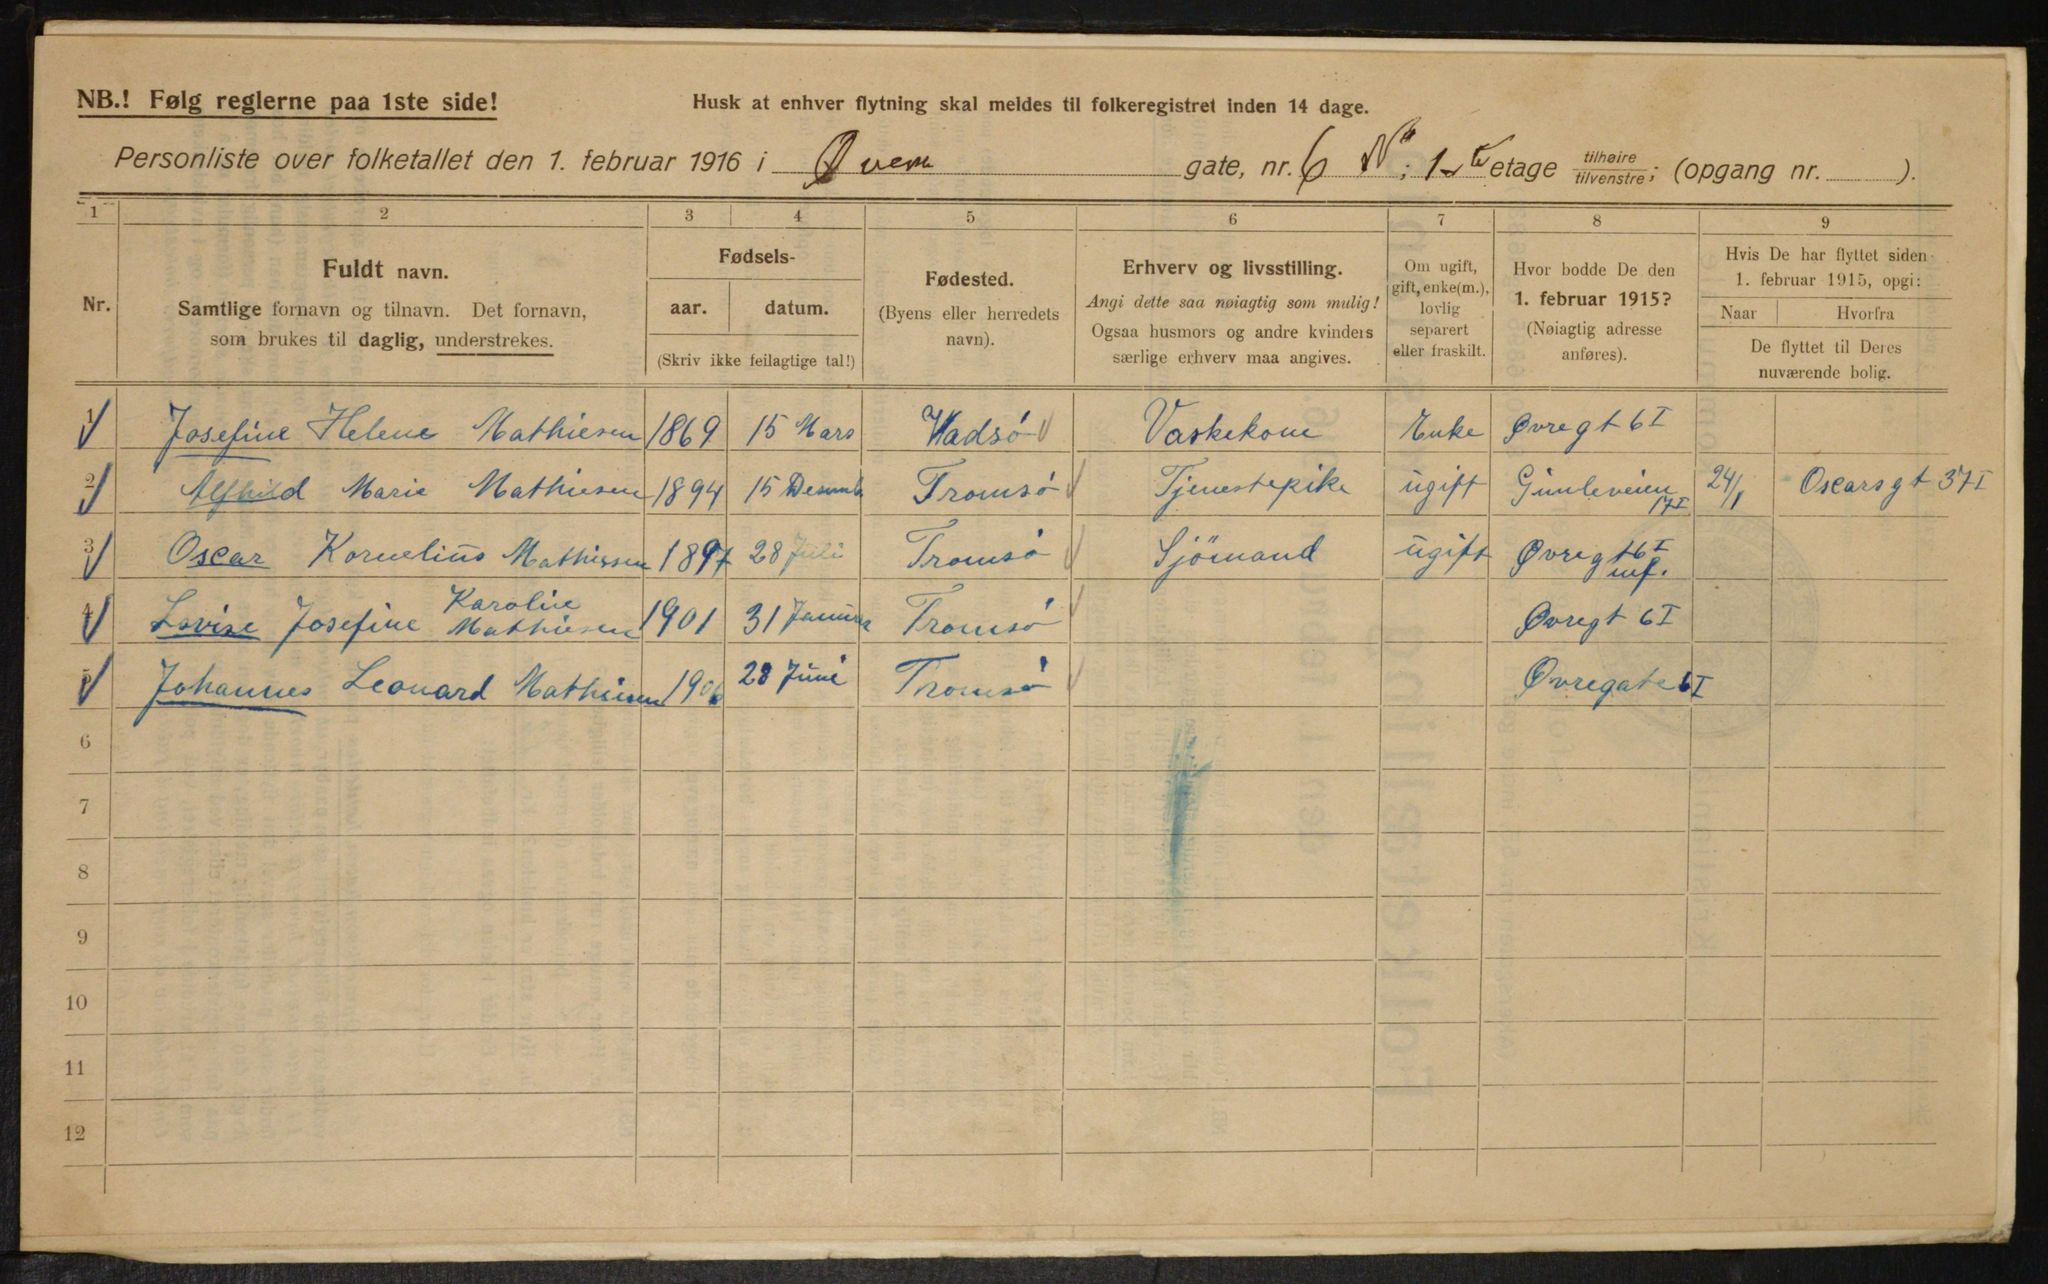 NB.! Følg reglerne paa 1ste side!
Husk at enhver flytning skal meldes til folkeregistret inden 14 dage.
Personliste over folketallet den 1. februar 1916 i Øvre gate, nr. 6 ; 1ste etage tilhøire tilvenstre; (opgang nr. ).
1 2 3 4 5 6 7 8 9
Nr.
Fuldt navn.
Samtlige fornavn og tilnavn. Det fornavn,
som brukes til daglig, understrekes.
Fødsels-
aar. datum.
(Skriv ikke feilagtige tal!)
Fødested.
(Byens eller herredets
navn).
Erhverv og livsstilling.
Angi dette saa nøiagtig som mulig!
Ogsaa husmors og andre kvinders
særlige erhverv maa angives.
Om ugift,
gift, enke(m.),
lovlig
separert
eller fraskilt.
Hvor bodde De den
1. februar 1915?
(Nøiagtig adresse
anføres).
Hvis De har flyttet siden
1. februar 1915, opgi:
Naar Hvorfra
De flyttet til Deres
nuværende bolig.
1 Josefine Helene Mathiesen 1869 15 Mars Vadsø Vaskekone Enke Øvregt 6 I
2 Alfhild Marie Mathiesen 1894 15 Desemb Tromsø Tjenestepike ugift Gimleveien 17 I 24/1 Oscarsgt 37 I
3 Oscar Kornelius Mathissen 1897 28 Juli Tromsø Sjömand ugift Øvregt 6 I
4 Lovise Josefine Karoline Mathiesen 1901 31 Januar Tromsø Øvregt 6 I
5 Johannes Leonard Mathiesen 1906 28 Juni Tromsø Øvregate 6 I
6
7
8
9
10
11
12